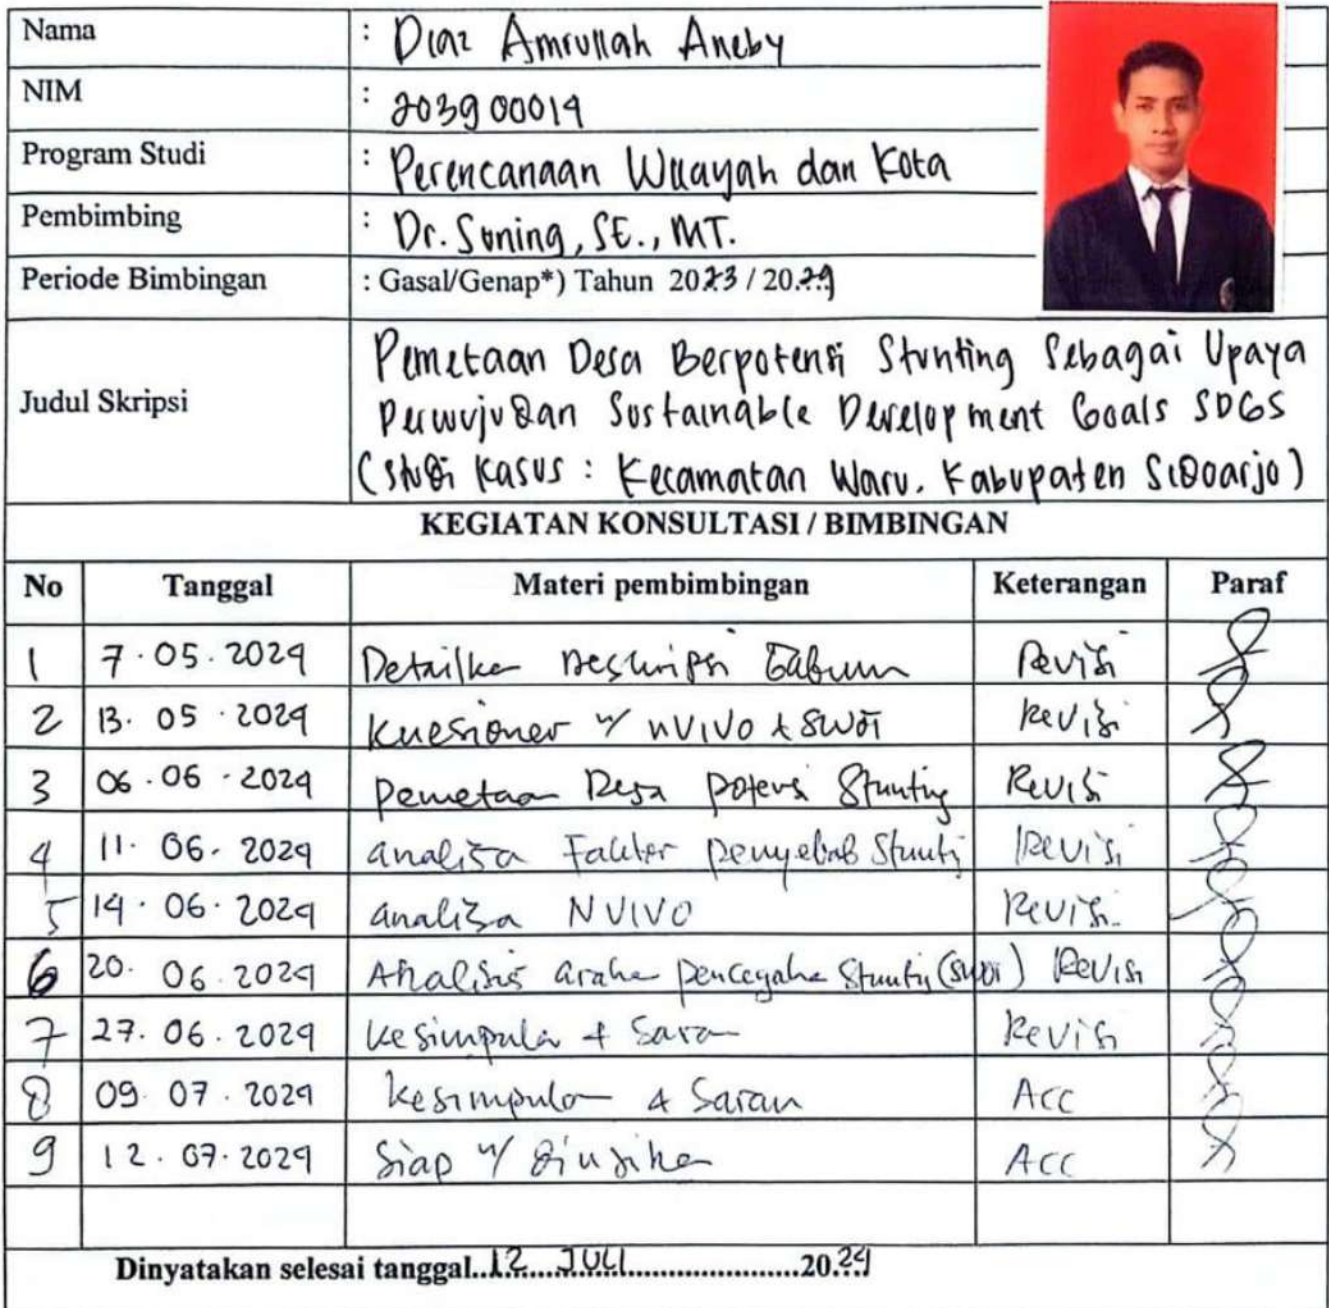 Nama : Diaz Amrullah Aneby
NIM : 203900014
Program Studi : Perencanaan Wilayah dan Kota
Pembimbing : Dr. Suning, SE., MT.
Periode Bimbingan : Gasal/Genap*) Tahun 2023 / 20.24
Judul Skripsi
Pemetaan Desa Berpotensi Stunting Sebagai Upaya
Perwujudan Sustainable Development Goals SDGS
(Studi Kasus : Kecamatan Waru, Kabupaten Sidoarjo)
KEGIATAN KONSULTASI / BIMBINGAN
No Tanggal Materi pembimbingan Keterangan Paraf
1 7.05.2024 Detailka Deskripsi Revisi
2 13.05.2024 Kuesioner u/ NVIVO & SWOT Revisi
3 06.06.2024 Pemetaan Desa potensi Stunting Revisi
4 11.06.2024 analisa Faktor penyebab Stunti Revisi
5 14.06.2024 analisa NVIVO Revisi
6 20.06.2024 Analisis araha pencegaha Stunti (SWOT) Revisi
7 27.06.2024 Kesimpula & Sara Revisi
8 09.07.2024 Kesimpula & Saran Acc
9 12.07.2024 Siap u/ diujika Acc
Dinyatakan selesai tanggal..12.....JULI........................20.24